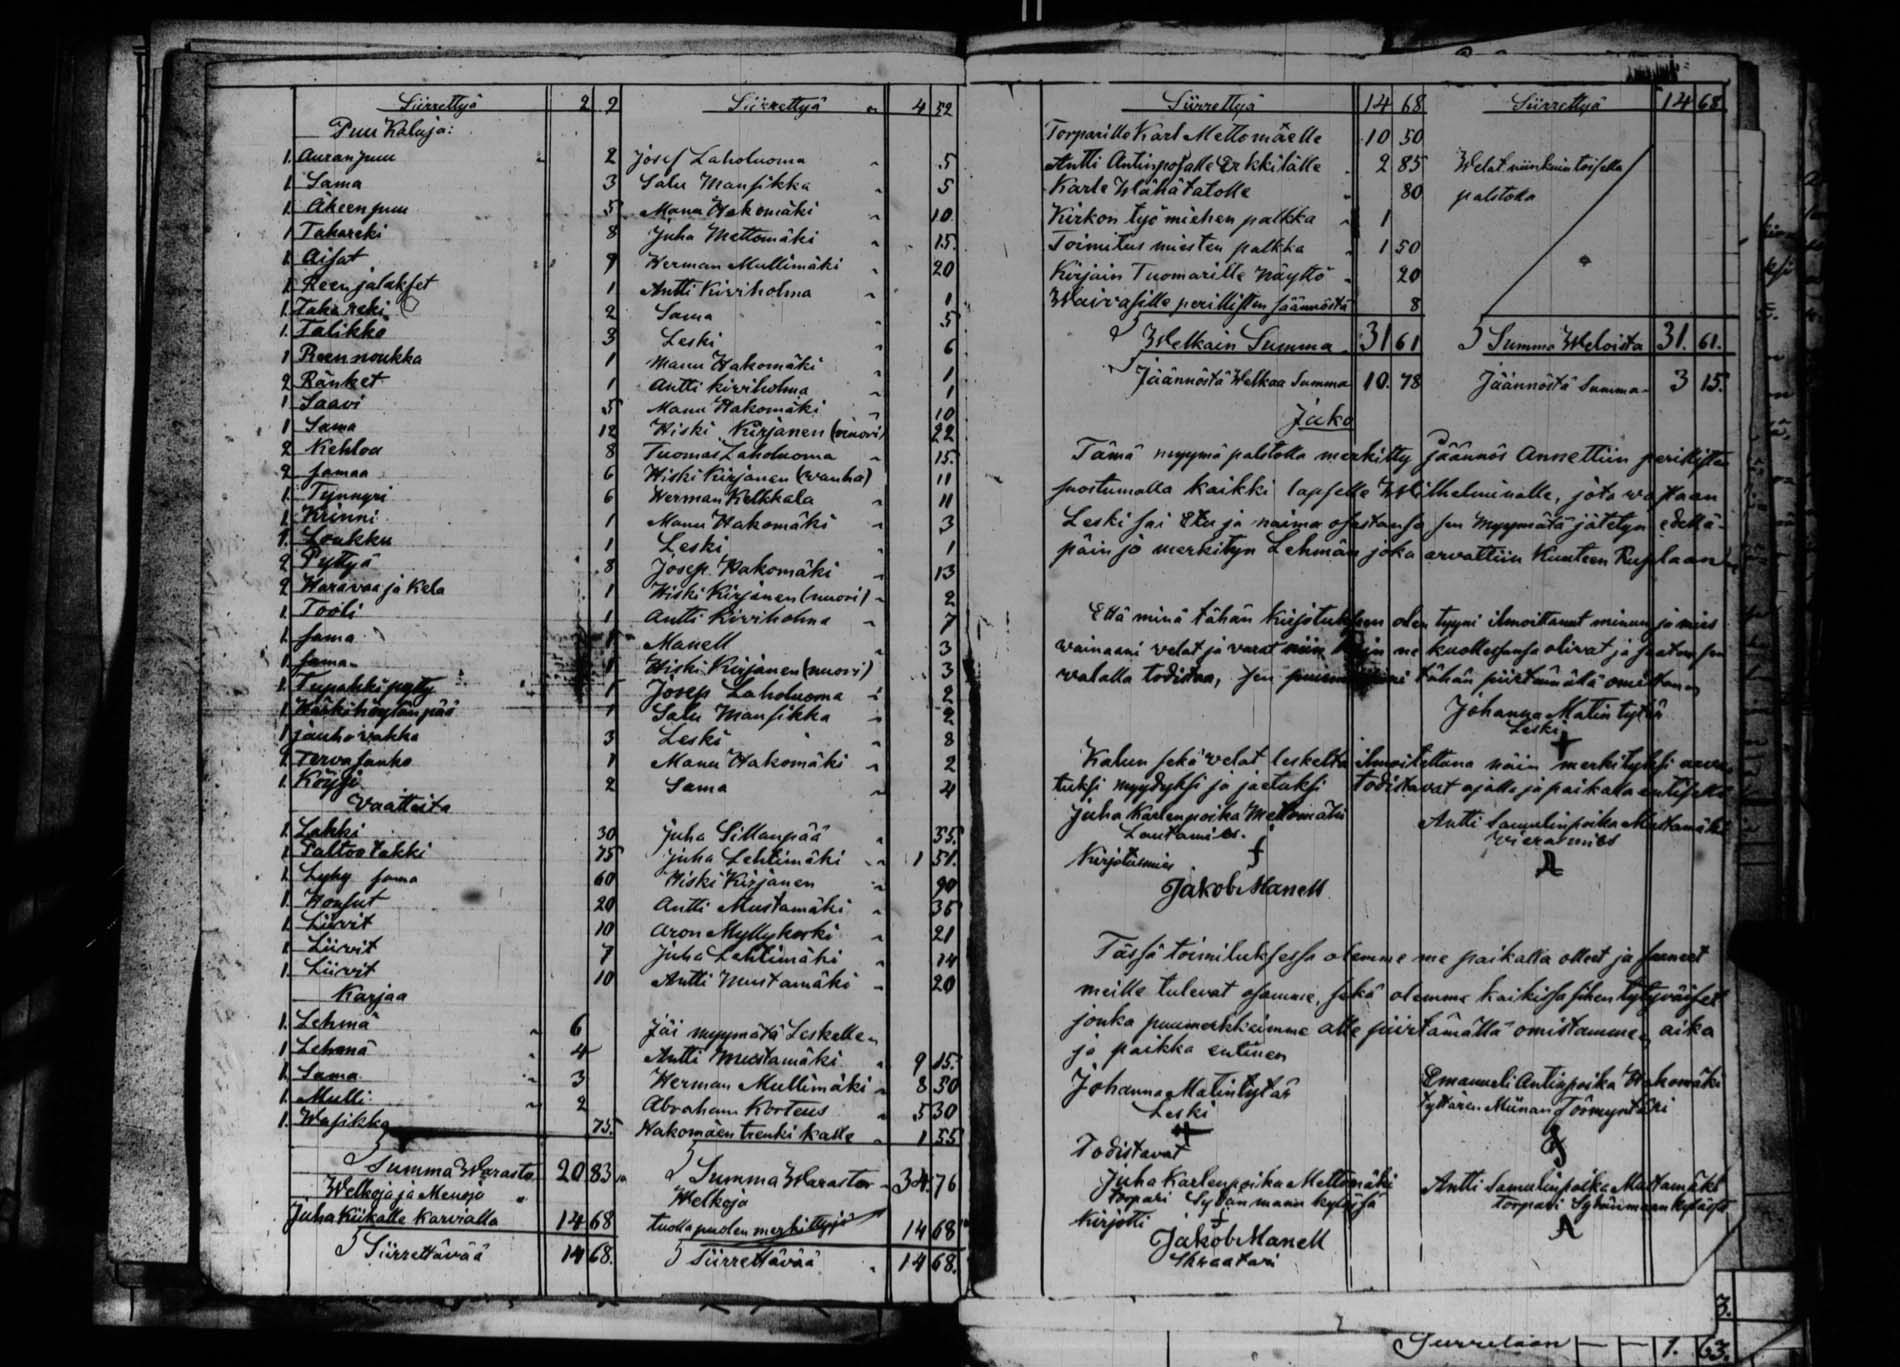 Siirrettyä 2 9 Siirrettyä " 4 52
Puu Kaluja:
1. Auran puu 2 Josef Laholuoma " 5
1 Sama 3 Salu Mansikka " 5
1. Äkeen puu 5 Manu Hakomäki " 10
1 Takareki 8 Juha Mettomäki " 15.
1. Aisat 9 Herman Mullimäki " 20
1 Reen jalakset 1 Antti Kiviholma " 1
1. Taka reki 2 Sama 5
1. Talikko 3 Leski 6
1 Reennoukka 1 Manu Hakomäki " 1
2 Ränket 1 Antti Kiviholma " 1
1 Saavi 5 Manu Hakomäki " 10
1 Sama 12 Hiski Kirjanen (nuori) 22
2 Kehloa 8 Tuomas Laholuoma " 15.
2 samaa 6 Hiski Kirjanen (wanha) 11
1. Tynnyri 6 Herman Kelkkala " 11
1 Krinni 1 Manu Hakomäki " 3
1. Loukku 1 Leski " 1
2 Pyttyä 8 Josep Hakomäki " 13
2 Haravaa ja Kela 1 Hiski Kirjanen (nuori) " 2
1. Tooli 1 Antti Kiviholma " 7
1 sama 1 Manell 3
1 sama 1 Hiski Kirjanen (nuori) 3
1. Tupakki pytty 1 Josep Laholuoma " 2
1 1 Salu Mansikka " 2
1 jauho vakka 3 Leski " 8
1. Terva sanko 1 Manu Hakomäki " 2
1. Köysi 2 Sama " 4
Vaatteita
1. Lakki 30 Juha Sillanpää " 35.
1. Paltootakki 75 Juha Lehtimäki " 1 51.
1. Lyhy sama 60 Hiski Kirjanen " 90
1. Housut 20 Antti Mustamäki " 36
1. Liivit 10 Aron Myllykoski " 21
1. Liivit 7 Juha Lehtimäki " 14
1. Liivit 10 Antti Mustamäki " 20
Karjaa
1. Lehmä " 6 Jäi myymätä Leskelle "
1 Lehmä " 4 Antti Mustamäki " 9 15.
1. Sama " 3 Herman Mullimäki " 8 50
1. Mulli " 2 Abraham Korteus " 5 30
1. Wasikka 75. Hakomäen trenki Kalle " 1 55
Summa Warasto 20 83 Summa Warastoa " 34 76
Welkoja ja Menoja " Welkoja
Juha Kiikalle Karvialla 14 68 tuolla puolen merkittyjä 14 68
Siirrettävää 14 68. Siirrettävää " 14 68.
Siirrettyä 14 68 Siirrettyä 14 68
Torparille Karl Mettomäelle 10 50
Antti Antinpojalle Erkkilälle " 2 85 Welat niinkuin toisella
Karle Wähätalolle " 80 palstolla
Kirkon työ miehen palkka " 1
Toimitus miesten palkka " 1 50
Kirjain Tuomarille Näyttö " 20
Waivasille perillisten säännöstä 8
Welkain Summa " 31 61 Summa Weloista 31. 61.
Jäännöstä Welkaa Summa 10. 78 Jäännöstä Summa " 3 15.
Jako
Tämä myymä palstolla merkitty Jäännös Annettiin perillisten
suostumalla kaikki lapselle Wilhelminalle, jota vastaan
Leski sai Etu ja naima osastansa sen Myymätä jätetyn edellä-
päin jo merkityn Lehmän joka arvattiin Kuuteen Ruplaan
Että minä tähän kirjotukseen olen tyyni ilmoittanut minun ja mies
vainaani velat ja varat niin kuin ne kuollessansa olivat ja saatan sen
valalla todistaa, sen tähän piirtämätä omistanen
Johanna Matin tytär
Leski
Kalun sekä velat leskeltä ilmoitettuna näin merkityksi arva-
tuksi myydyksi ja jaetuksi todistavat ajalla ja paikalla entisellä
Juha Karlenpoika Mettomäki Antti Samulinpoika Mustamäki
Lautamies. vieras mies
Kirjotusmies
Jakob Manell
Tässä toimituksessa olemme me paikalla olleet ja saaneet
meille tulevat osamme, sekä olemme kaikissa siihen tytyväiset
jonka puumerkkeimme alle piirtämällä omistamme, aika
ja paikka entinen
Johanna Matintytär Emanueli Antinpoika Hakomäki
Leski tyttären Miinan Förmyntäri
Todistavat
Juha Karlenpoika Mettomäki Antti Samulinpoika Mustamäki
torpari Sydänmaan kylässä torpari Sydänmaan kylässä
Kirjotti
Jakob Manell
Skraatari
3.
Siirretään 1. 63.